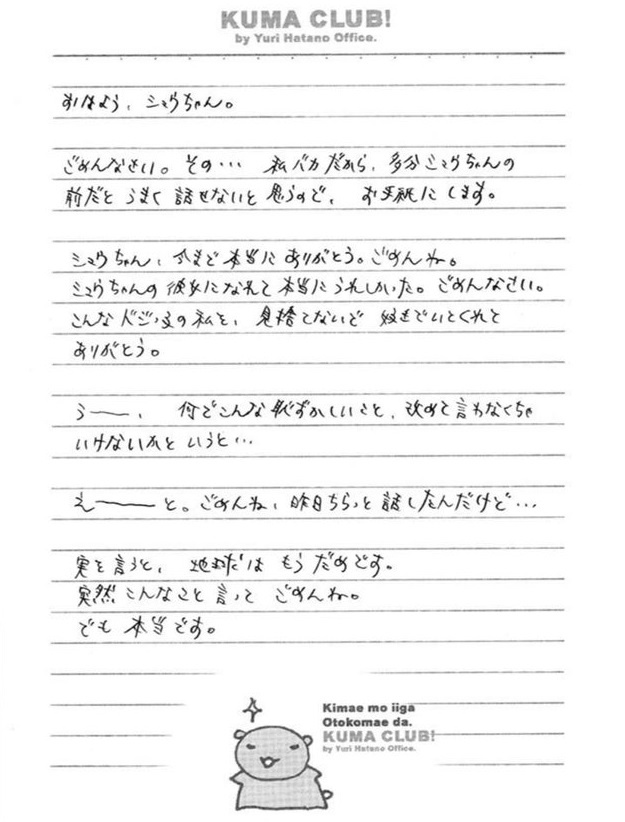 KUMA CLUB!
by Yuri Hatano Office.
おはよう、シュウちゃん。
ごめんなさい。その… 私バカだから、多分シュウちゃんの
前だと うまく 話せないと 思うので、 お手紙に します。
シュウちゃん、今まで 本当に ありがとう。ごめんね。
シュウちゃんの 彼女に なれて 本当に うれしかった。ごめんなさい。
こんな ドジっ子の 私を、見捨てないで 好きでいてくれて
ありがとう。
う――、 何でこんな 恥ずかしいこと、改めて 言わなくちゃ
いけないかと いうと…
え――と。ごめんね、昨日ちらっと 話したんだけど…
実を言うと、 地球は もう だめです。
突然 こんなこと 言って ごめんね。
でも 本当です。
Kimae mo iiga
Otokomae da.
KUMA CLUB!
by Yuri Hatano Office.